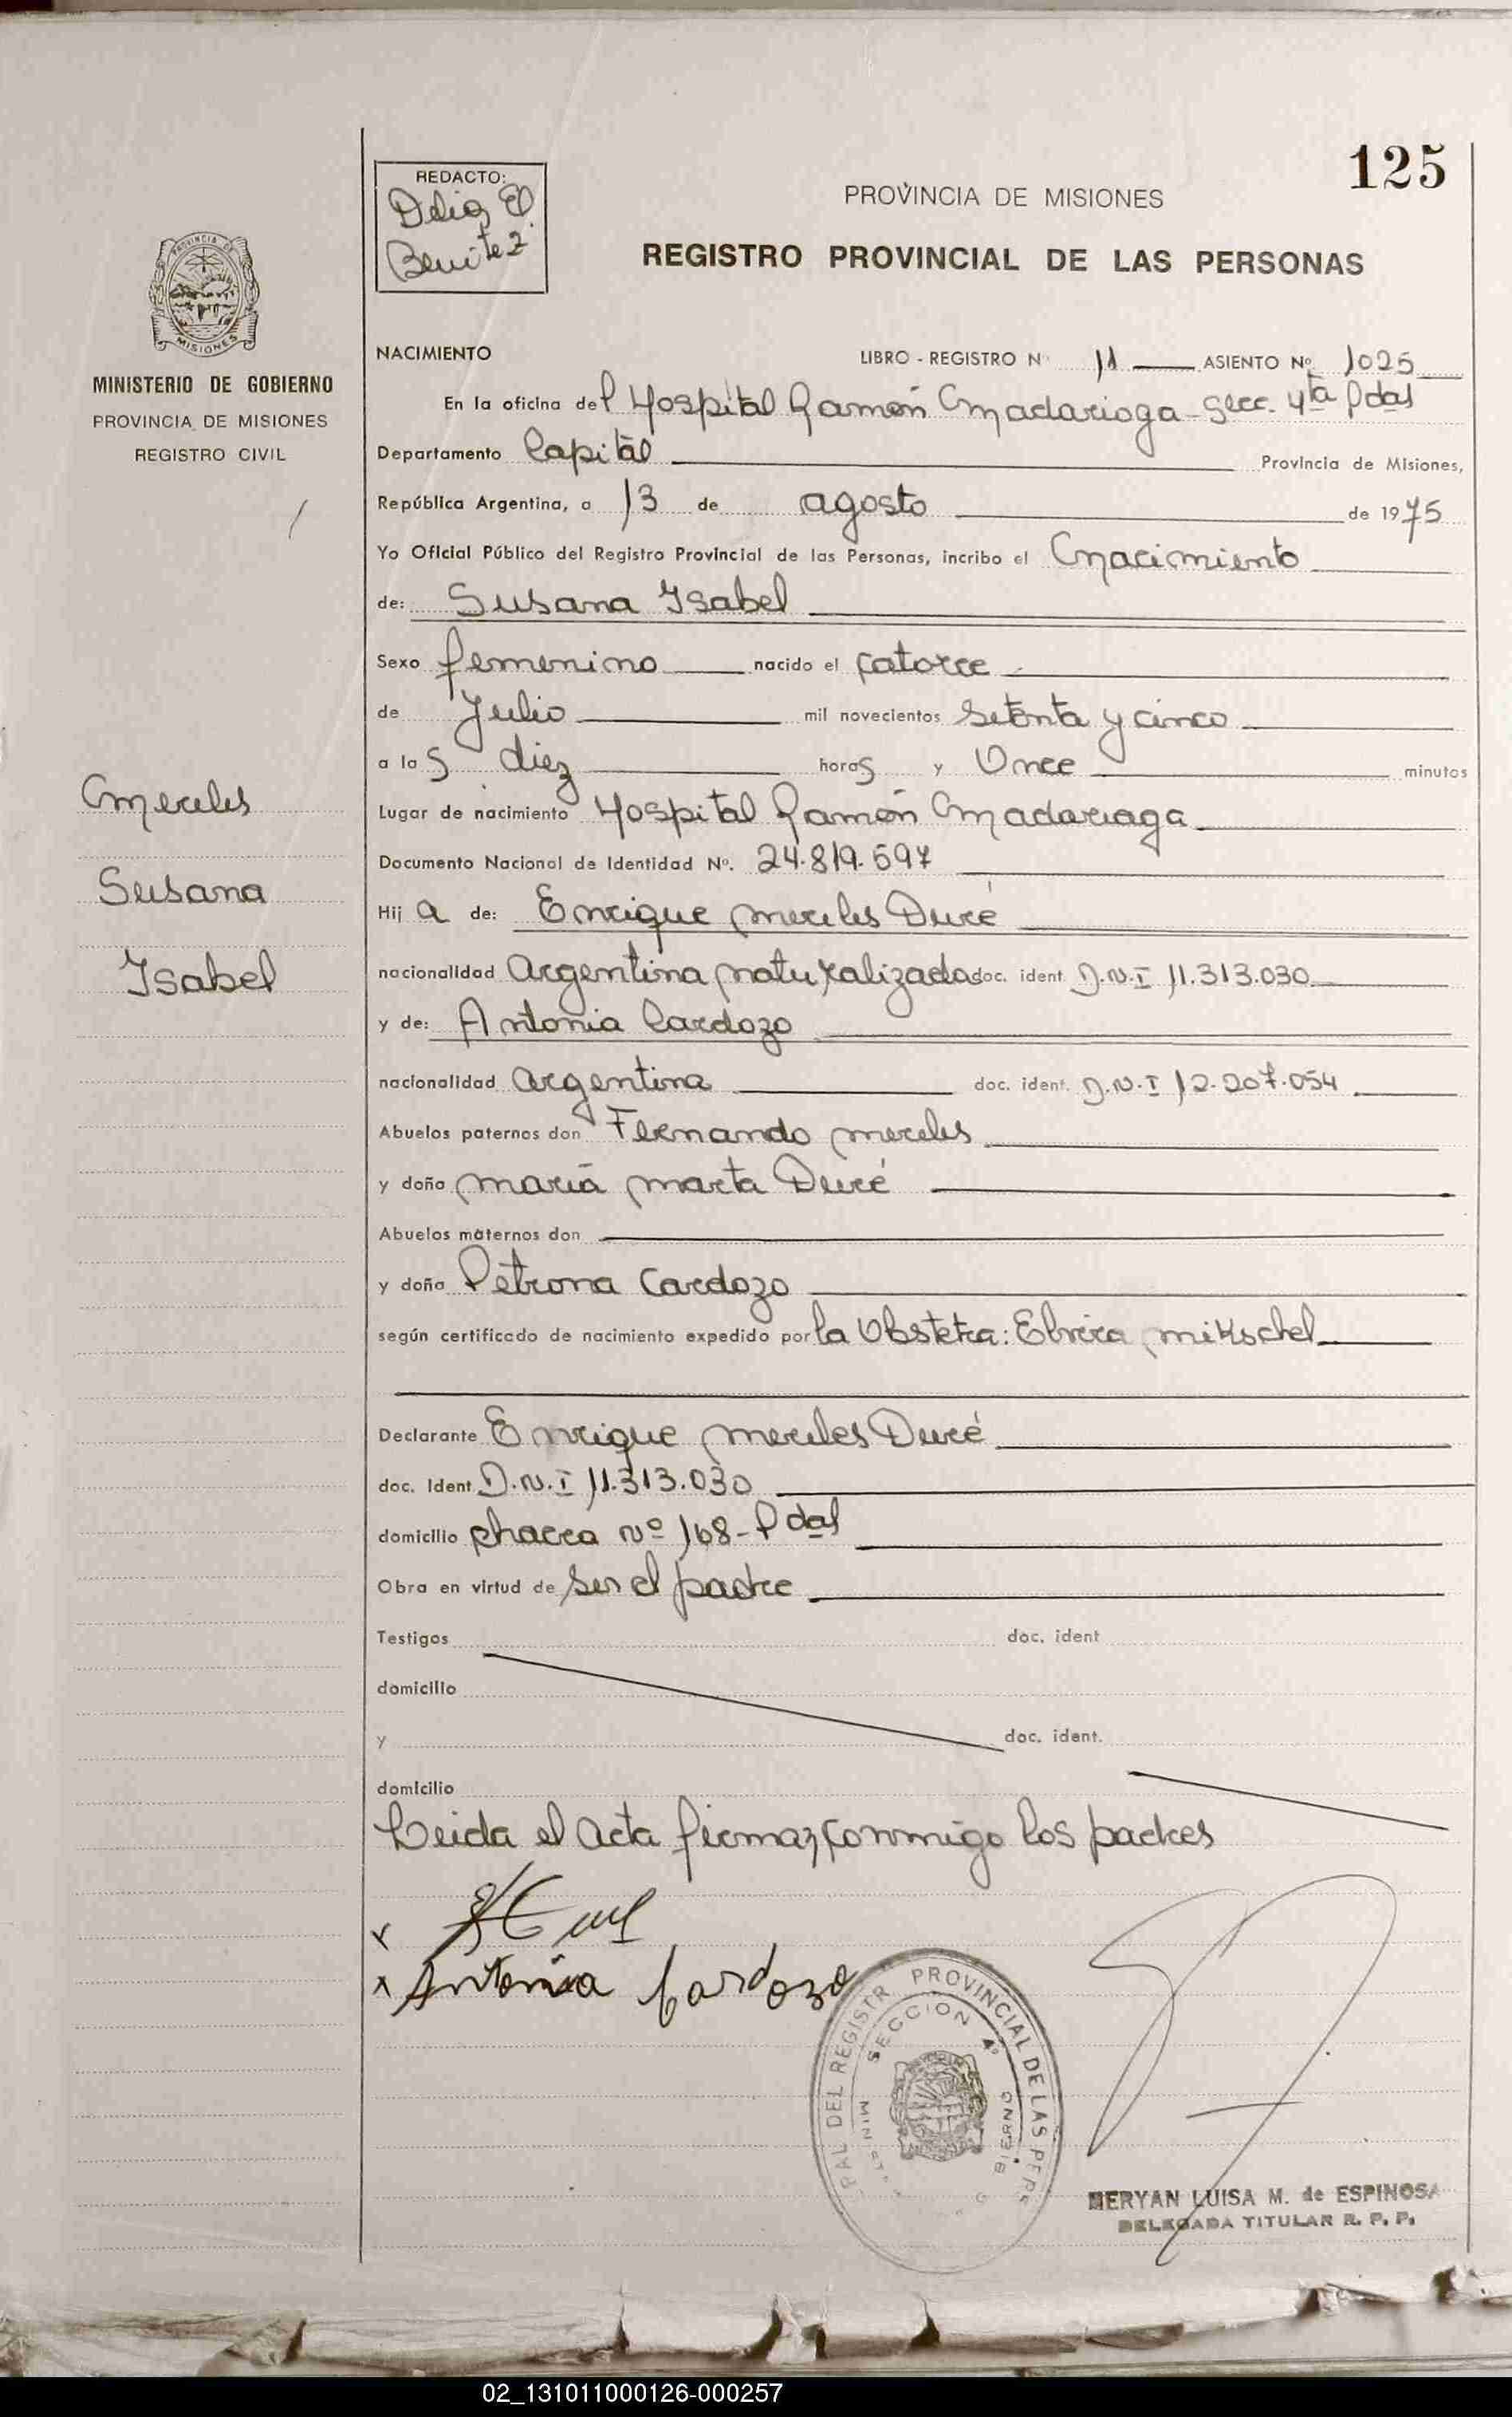 125
REDACTO:
Delia E.
Benitez
PROVINCIA DE MISIONES
REGISTRO PROVINCIAL DE LAS PERSONAS
PROVINCIA DE
MISIONES
MINISTERIO DE GOBIERNO
PROVINCIA DE MISIONES
REGISTRO CIVIL
Mereles
Susana
Isabel
NACIMIENTO LIBRO - REGISTRO Nº 11 ASIENTO Nº 1025
En la oficina del Hospital Ramón Madariaga - Secc. 4ta Pdas
Departamento Capital Provincia de Misiones,
República Argentina, a 13 de agosto de 1975
Yo Oficial Público del Registro Provincial de las Personas, incribo el Nacimiento
de: Susana Isabel
Sexo femenino nacido el catorce
de Julio mil novecientos setenta y cinco
a las diez horas y Once minutos
Lugar de nacimiento Hospital Ramón Madariaga
Documento Nacional de Identidad Nº. 24.819.597
Hija de: Enrique Mereles Duré
nacionalidad Argentina naturalizada doc. ident. D.N.I 11.313.030
y de: Antonia Cardozo
nacionalidad argentina doc. ident. D.N.I 12.207.054
Abuelos paternos don Fernando Mereles
y doña María Marta Duré
Abuelos maternos don
y doña Petrona Cardozo
según certificado de nacimiento expedido por la Obstetra: Elvira Mikschel
Declarante Enrique Mereles Duré
doc. Ident. D.N.I 11.313.030
domicilio chacra Nº 168 - Pdas
Obra en virtud de ser el padre
Testigos doc. ident
domicilio
y doc. ident.
domicilio
Leida el acta firman conmigo los padres
Antonia Cardozo
PAL DEL REGISTR PROVINCIAL DE LAS PERS
SECCION 4º
MERYAN LUISA M. de ESPINOSA
DELEGADA TITULAR R. P. P.
02_131011000126-000257